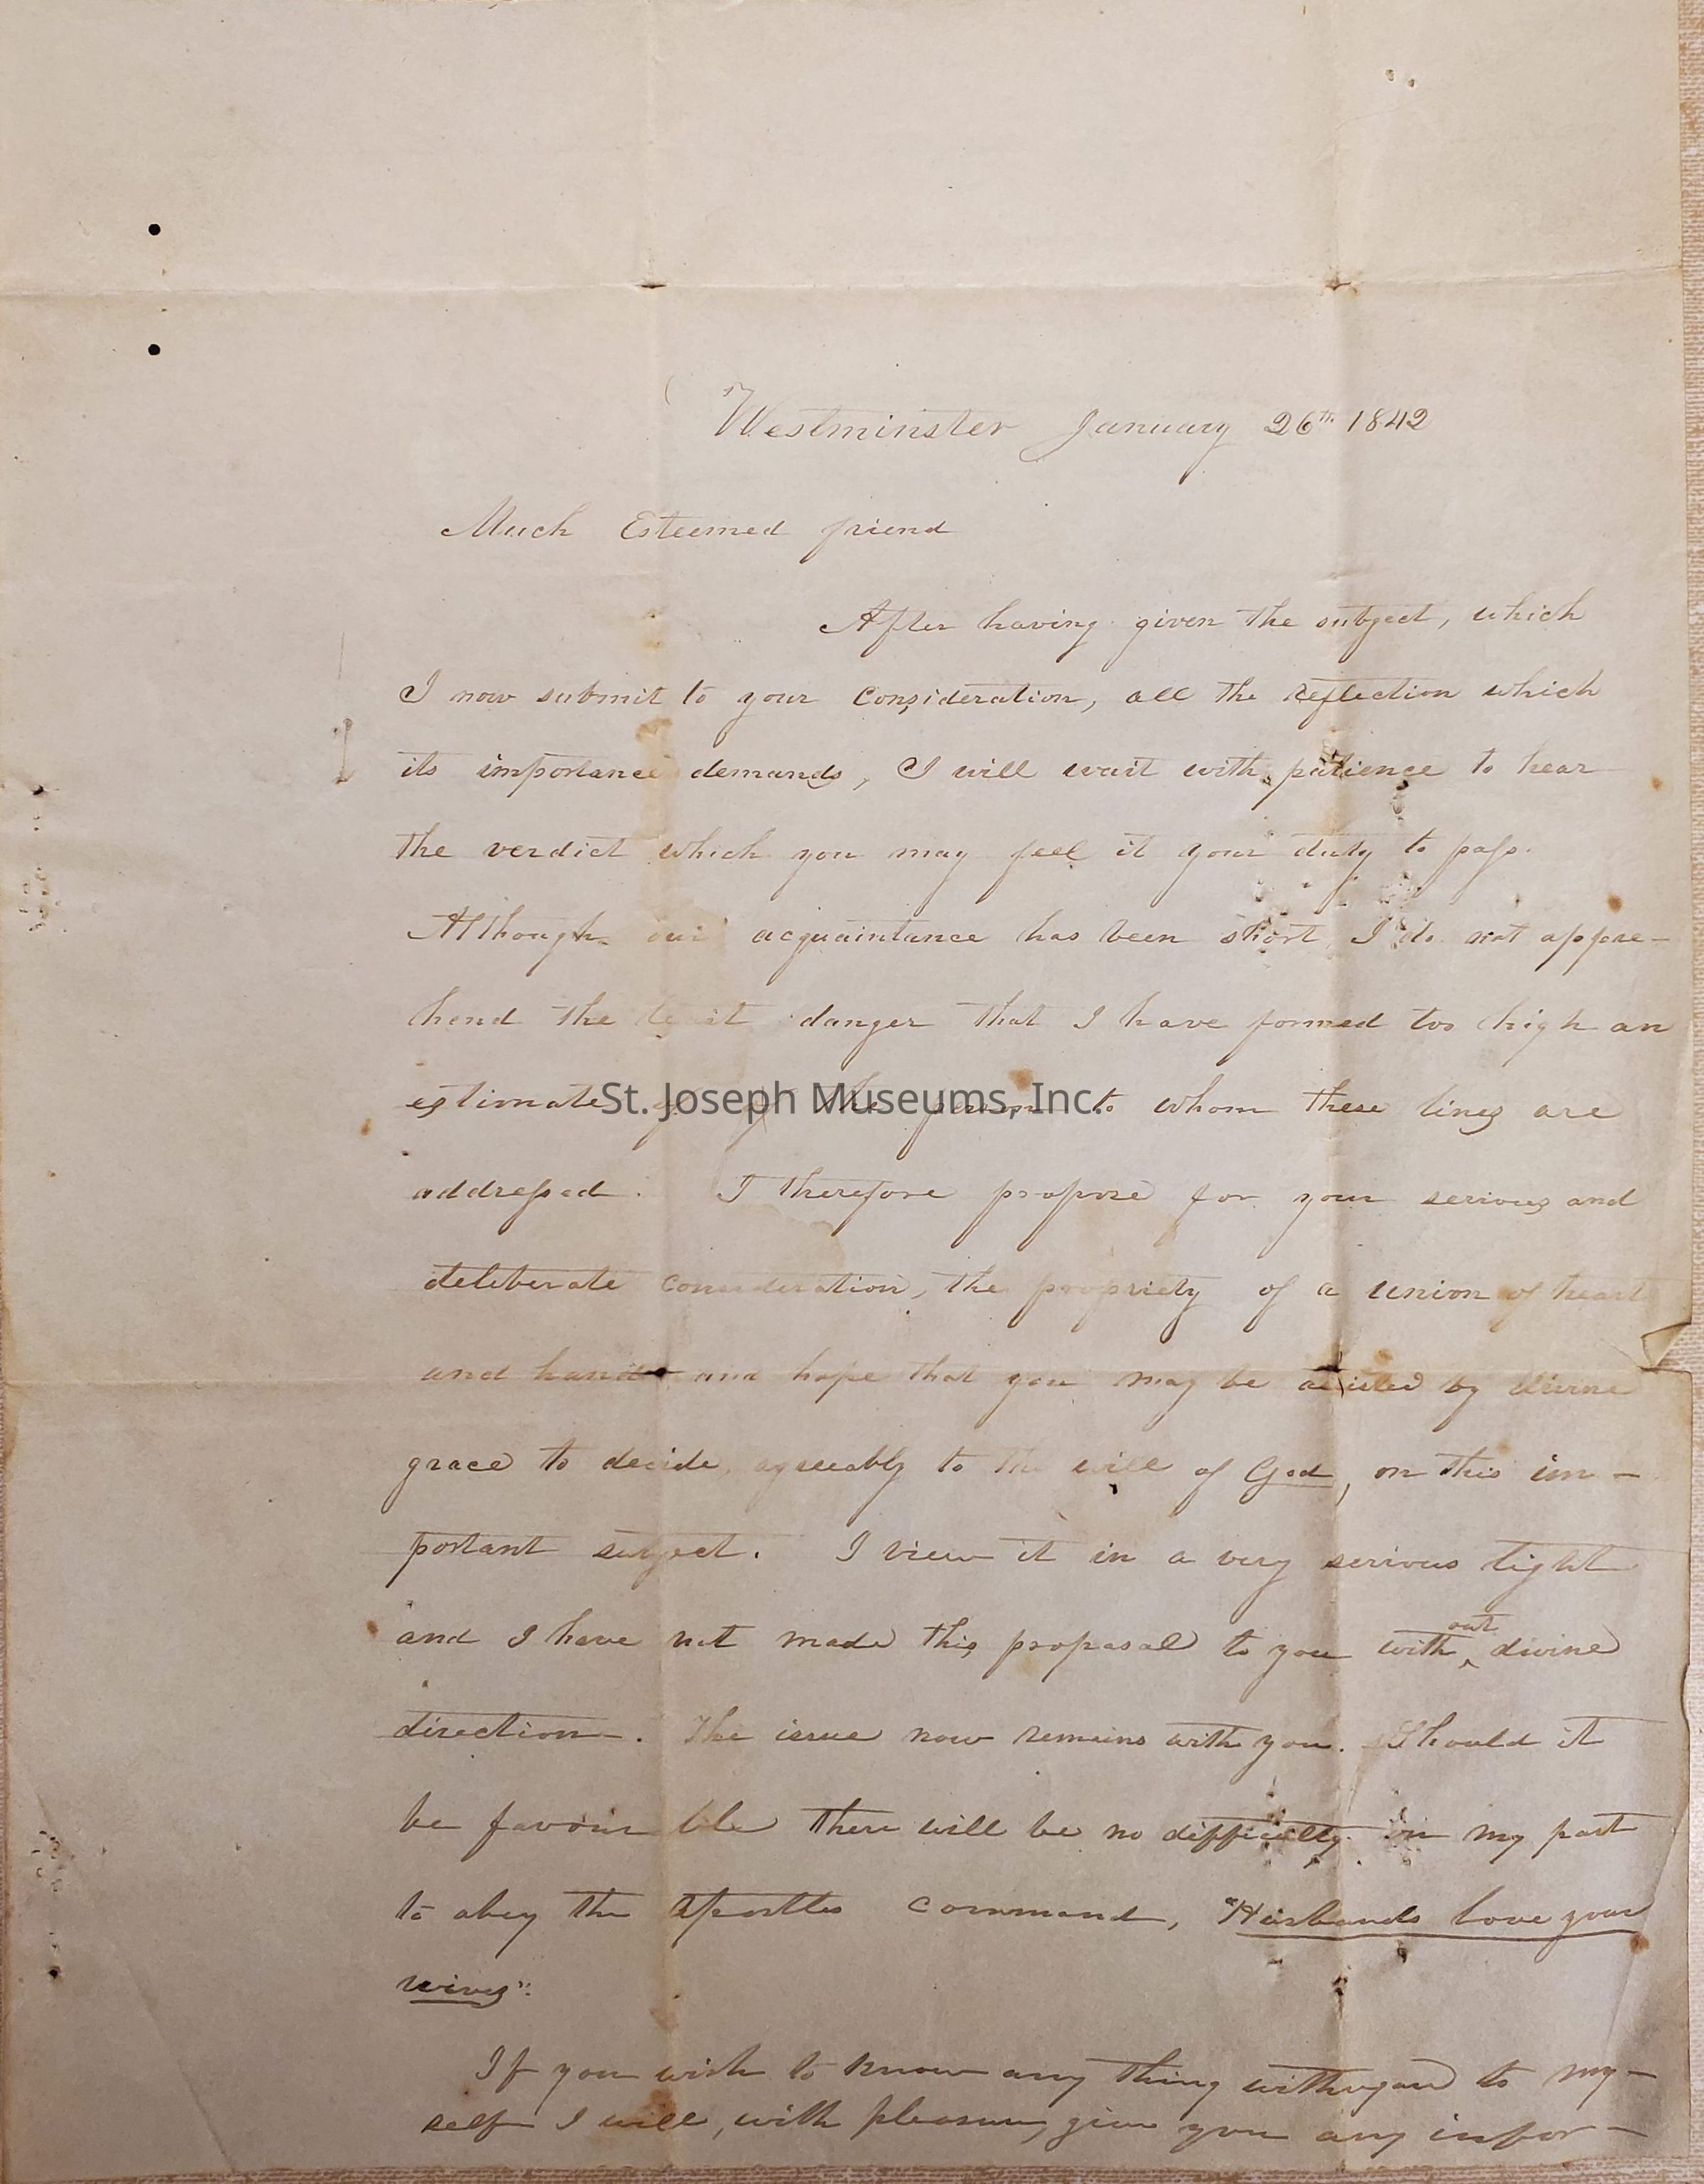 Westminster January 26th 1842
Much Esteemed friend
After having given the subject, which
I now submit to your consideration, all the reflection which
its importance demands, I will wait with patience to hear
the verdict which you may feel it your duty to pass.
Although our acquaintance has been short, I do not appre-
hend the least danger that I have formed too high an
estimate of the person to whom these lines are
St. Joseph Museums, Inc.
addressed. I therefore propose for your serious and
deliberate consideration, the propriety of a union of heart
and hand and hope that you may be assisted by divine
grace to decide, agreeably to the will of God, on this im-
portant subject. I view it in a very serious light
and I have not made this proposal to you without divine
direction. The issue now remains with you. Should it
be favourable there will be no difficulty on my part
to obey the Apostles command, "Husbands love your
wives".
If you wish to know any thing with regard to my-
self I will, with pleasure, give you any infor-